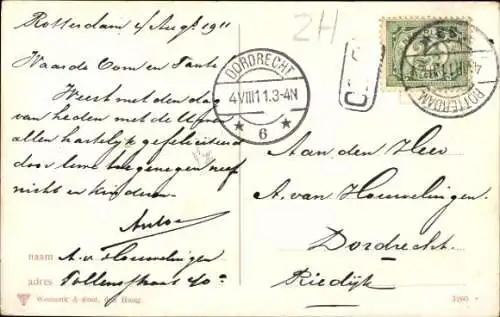 Rotterdam 4/Aug. 1911
2H
Waarde Oom en Tante
Weest met den dag
van heden met de Uwen
allen hartelijk gefeliciteerd
door uwe toegenegen neef
nicht en kinderen
Anton
naam A. v. Houwelingen
adres Tollensstraat
Weenenk & Snel, den Haag.
DORDRECHT
4 VIII 11.3-4N
6
ROTTERDAM
Aan den Heer
A. van Houwelingen
Dordrecht.
Riedijk